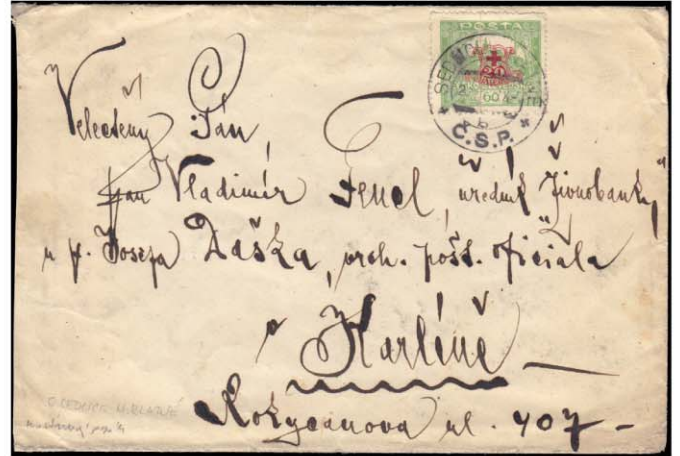 POSTA
+
20
60
Č.S.P.
Velectěný Pán,
Pan Vladimír Fencl, úředník „Živnobanky“
u p. Josefa Daška, vrch. pošt. oficiála
v Karlíně
Rokycanova ul. 407 -